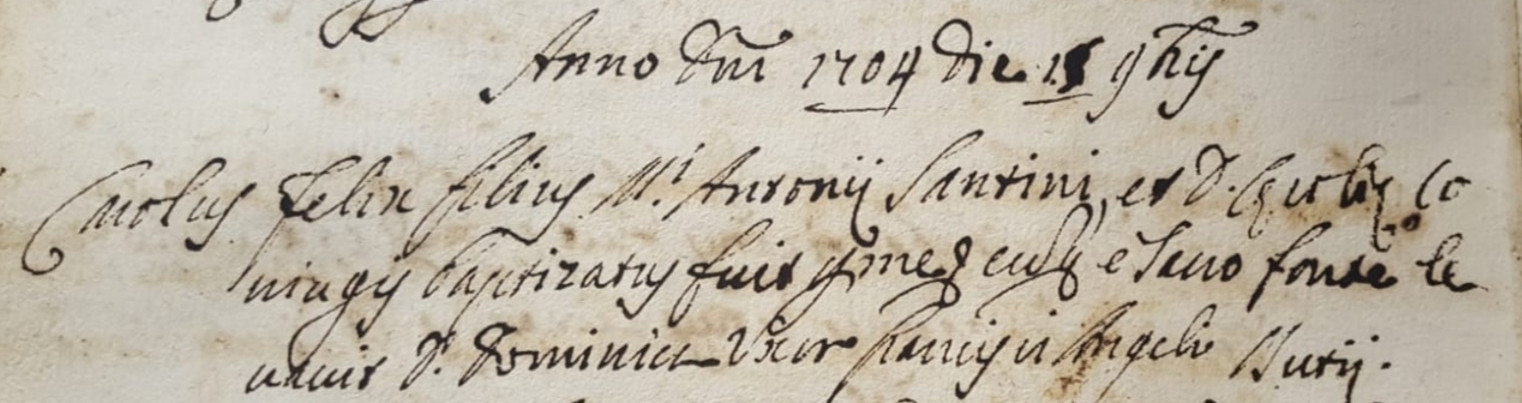 Anno Dnī 1704 die 15 9bris
Carolus Felix filius M.i Antonij Santini, et D. Co
niugis baptizatus fuit p me et eus e sacro fonte le
vavit D. Dominica Uxor Francisci Angeli Butij.